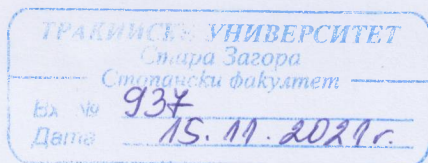 ТРАКИЙСКИ УНИВЕРСИТЕТ
Стара Загора
Стопански факултет
Вх № 937
Дата 15.11.2021г.